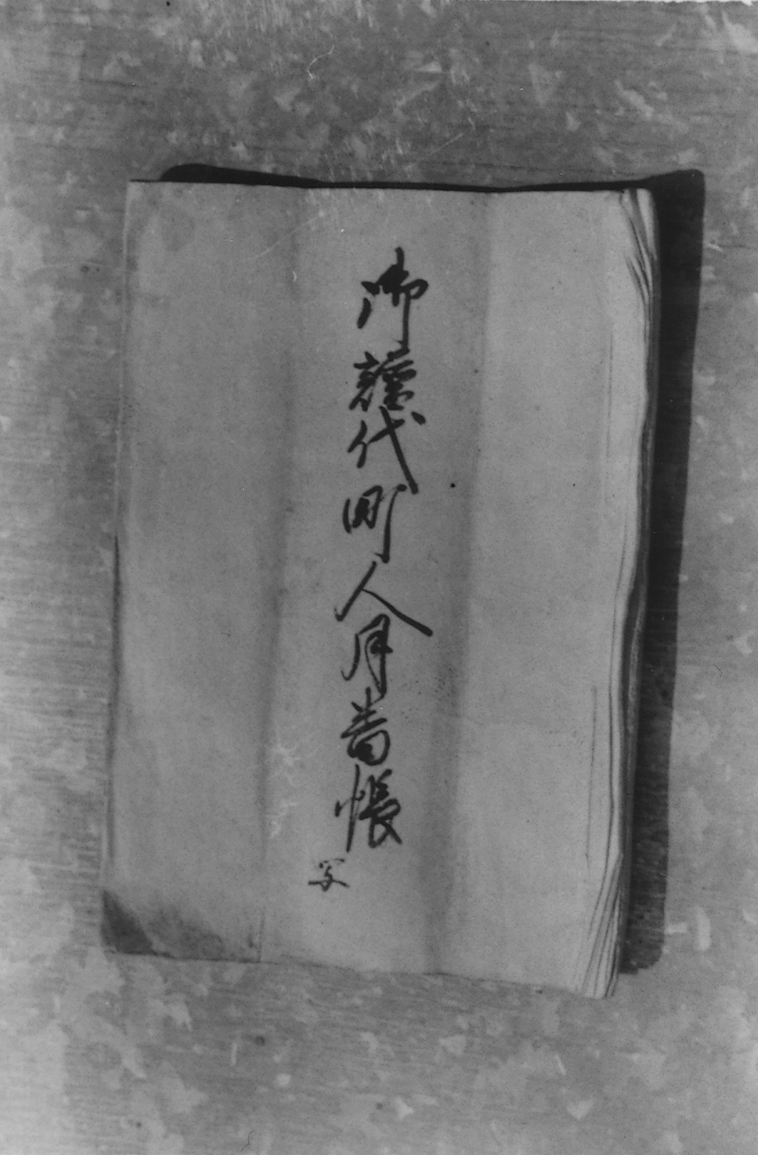 御譜代町人月番帳
写